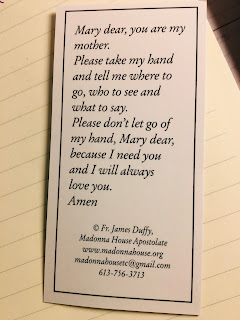 Mary dear, you are my
mother.
Please take my hand
and tell me where to
go, who to see and
what to say.
Please don't let go of
my hand, Mary dear,
because I need you
and I will always
love you.
Amen
© Fr. James Duffy,
Madonna House Apostolate
www.madonnahouse.org
madonnahousetc@gmail.com
613-756-3713